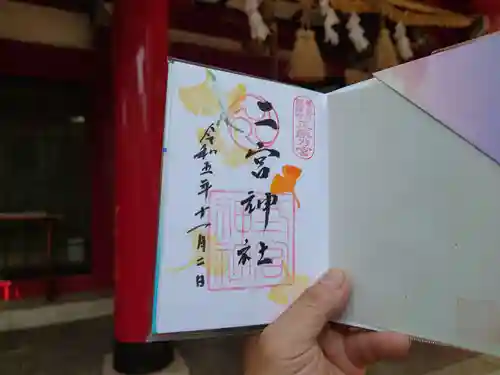 二宮神社
令和五年十一月二日